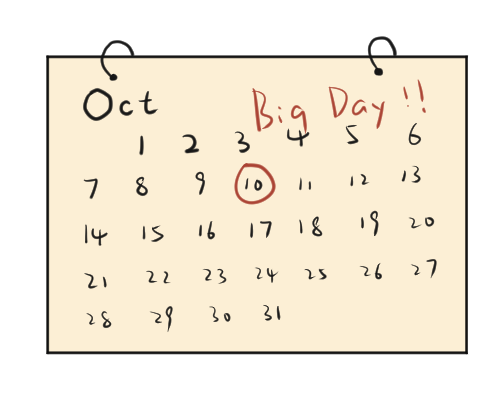 Oct Big Day!!
1 2 3 4 5 6
7 8 9 10 11 12 13
14 15 16 17 18 19 20
21 22 23 24 25 26 27
28 29 30 31